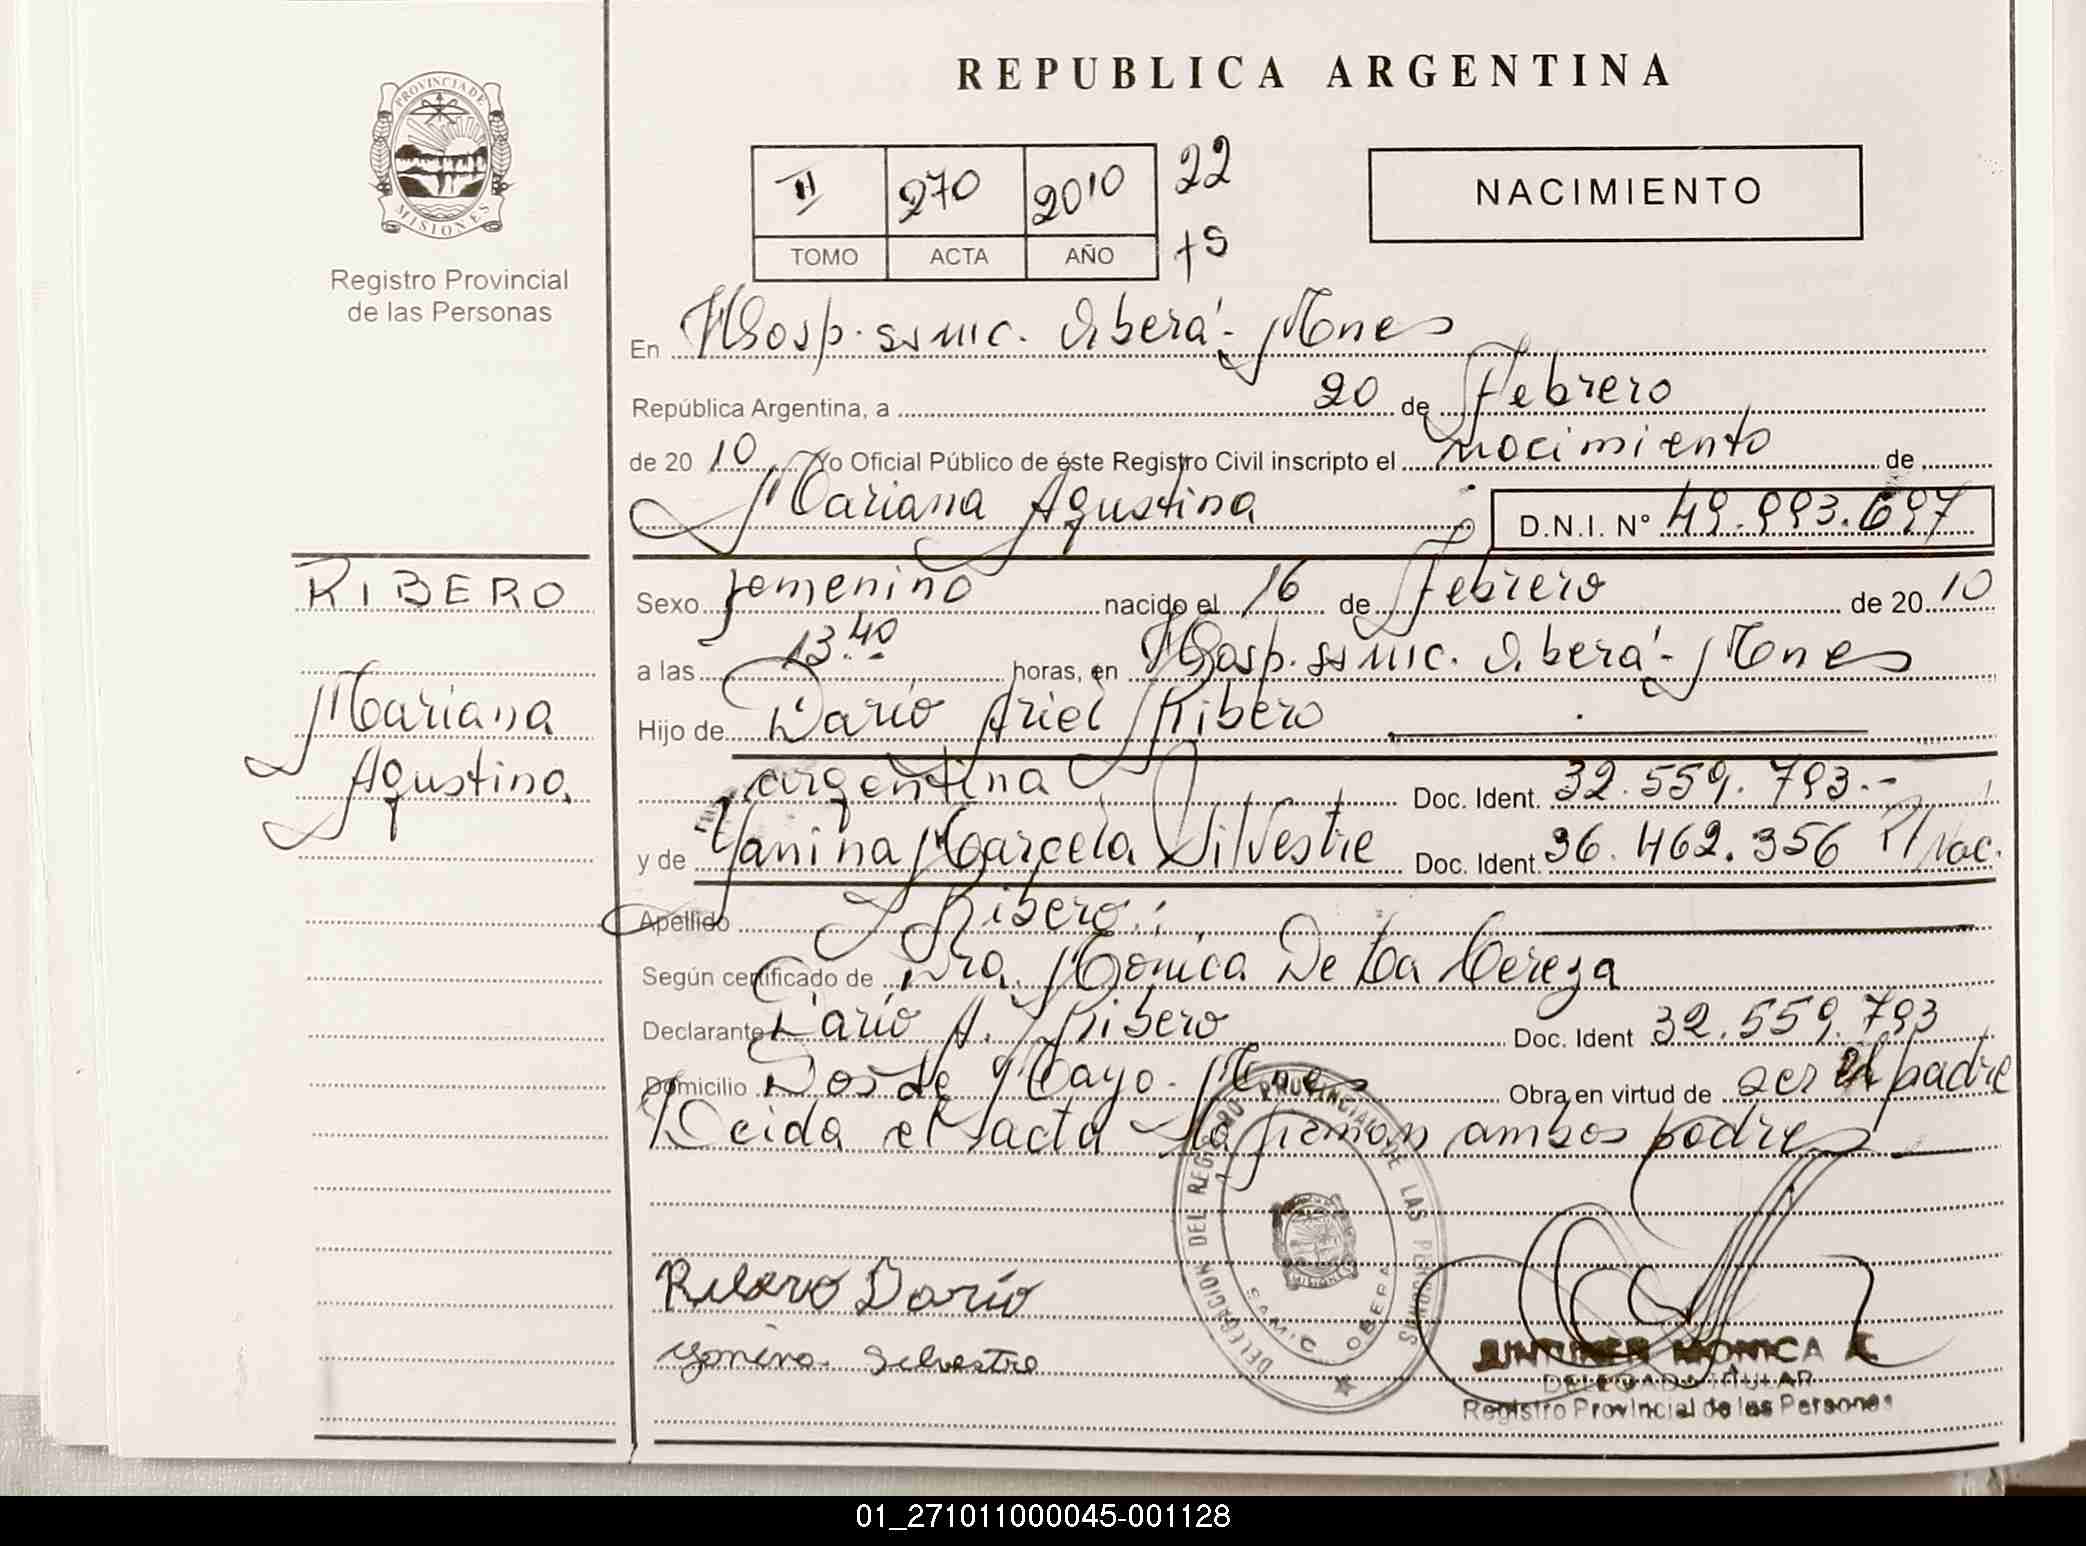 REPUBLICA ARGENTINA
PROVINCIA DE
MISIONES
Registro Provincial
de las Personas
II 270 2010 22
TOMO ACTA AÑO +S
NACIMIENTO
En Hosp. SAMIC. Oberá - Mnes
República Argentina, a 20 de Febrero
de 2010 Yo Oficial Público de éste Registro Civil inscripto el nacimiento de
Mariana Agustina D.N.I. N° 49.993.697
RIBERO
Mariana
Agustina
Sexo femenino nacido el 16 de Febrero de 2010
a las 13.40 horas, en Hosp. SAMIC. Oberá - Mnes
Hijo de Darío Ariel Ribero
argentina Doc. Ident. 32.559.793.-
y de Yanina Marcela Silvestre Doc. Ident. 36.462.356 P/Nac.
Apellido Ribero
Según certificado de Dra. Mónica De La Cereza
Declarante Darío A. Ribero Doc. Ident 32.559.793
Domicilio Dos de Mayo - Mnes Obra en virtud de ser el padre
Leida el acta la firman ambos padres
DELEGACION DEL REGISTRO PROVINCIAL DE LAS PERSONAS
MISIONES
SAMIC OBERA
Ribero Darío
Yanina Silvestre
MONICA
DELEGADA TITULAR
Registro Provincial de las Personas
01_271011000045-001128